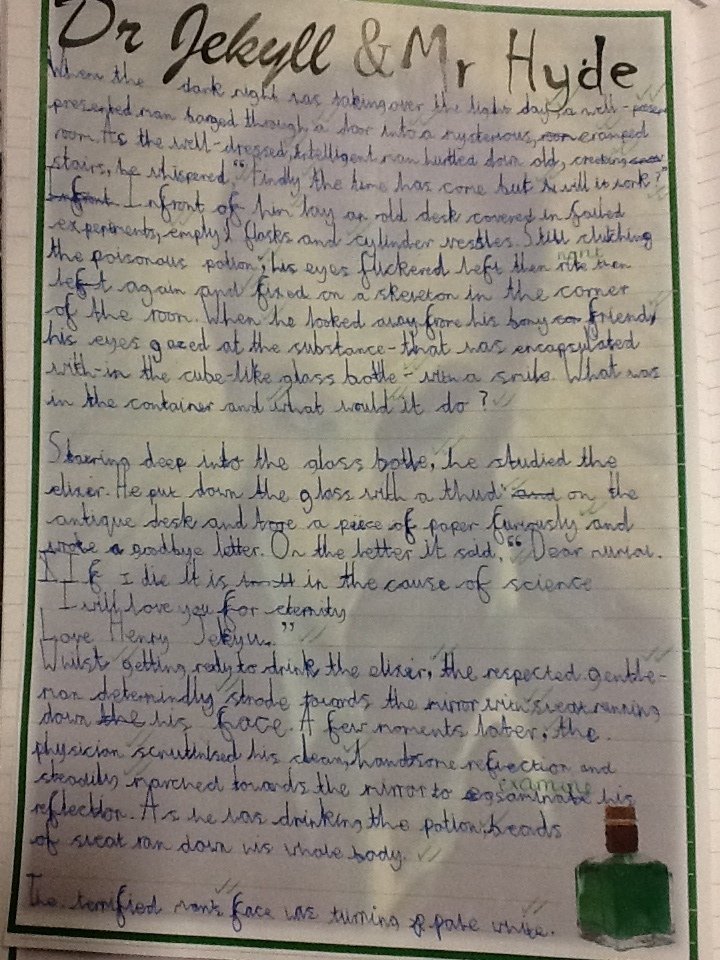 Dr Jekyll & Mr Hyde
When the dark night was taking over the light day, a well-
presented man barged through a door into a mysterious, cramped
room. As the well-dressed, intelligent man hurtled down old, creaking
stairs, he whispered, "Findly the time has come but will it work?"
Infront of him lay an old desk covered in failed
experiments, empty flasks and cylinder vessles. Still clutching
the poisonous potion, his eyes flickered left then rite then
left again and fixed on a skeleton in the corner
of the room. When he looked away from his bony friend,
his eyes gazed at the substance-that was encapsulated
with-in the cube-like glass bottle-with a smile. What was
in the container and what would it do?
Staering deep into the glass botle, he studied the
elixer. He put down the glass with a thud and on the
antique desk and tore a piece of paper furiously and
wrote a goodbye letter. On the letter it said, "Dear
If I die it is in the cause of science
I will love you for eternity
Love Henry Jekyll."
Whilst getting redy to drink the elixer, the respected gentle-
man determindly strode towards the mirror with sweat running
down the his face. A few moments later, the
physician scrutinised his clean, handsome reflection and
steadily marched towards the mirror to examine his
reflection. As he was drinking the potion, beads
of sweat ran down his whole body.
The terrified man's face was turning pale white.